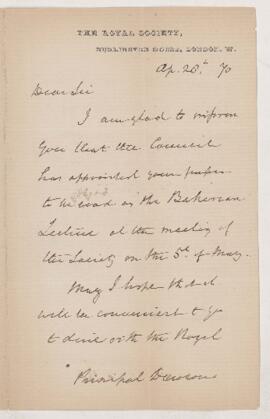 THE ROYAL SOCIETY,
BURLINGTON HOUSE, LONDON, W.
Ap. 28th 70
Dear Sir
I am glad to inform
you that the Council
has appointed your paper
to be read as the Bakerian
Lecture at the meeting of
the Society on the 5th of May.
May I hope that it
will be convenient to you
to dine with the Royal
Principal Dawson